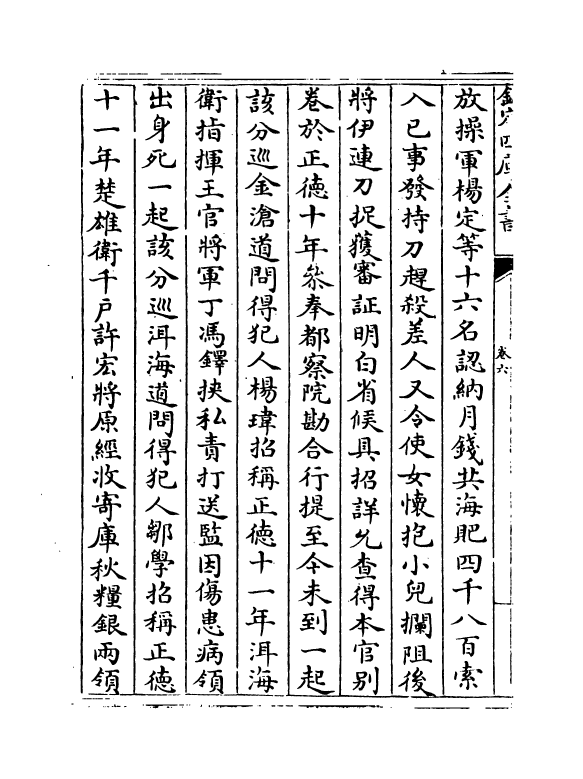 欽定四庫全書
卷六
放操軍楊定等十六名認納月錢共海𧵅四千八百索
入已事發持刀趕殺差人又令使女懷抱小兒攔阻後
將伊連刀捉獲審証明白省候具招詳允查得本官别
卷於正德十年叅奉都察院勘合行提至今未到一起
該分巡金滄道問得犯人楊瑋招稱正德十一年洱海
衛指揮王官將軍丁馮鐸挾私責打送監因傷患病領
出身死一起該分巡洱海道問得犯人鄒學招稱正德
十一年楚雄衛千戶許宏將原經收寄庫秋糧銀兩領